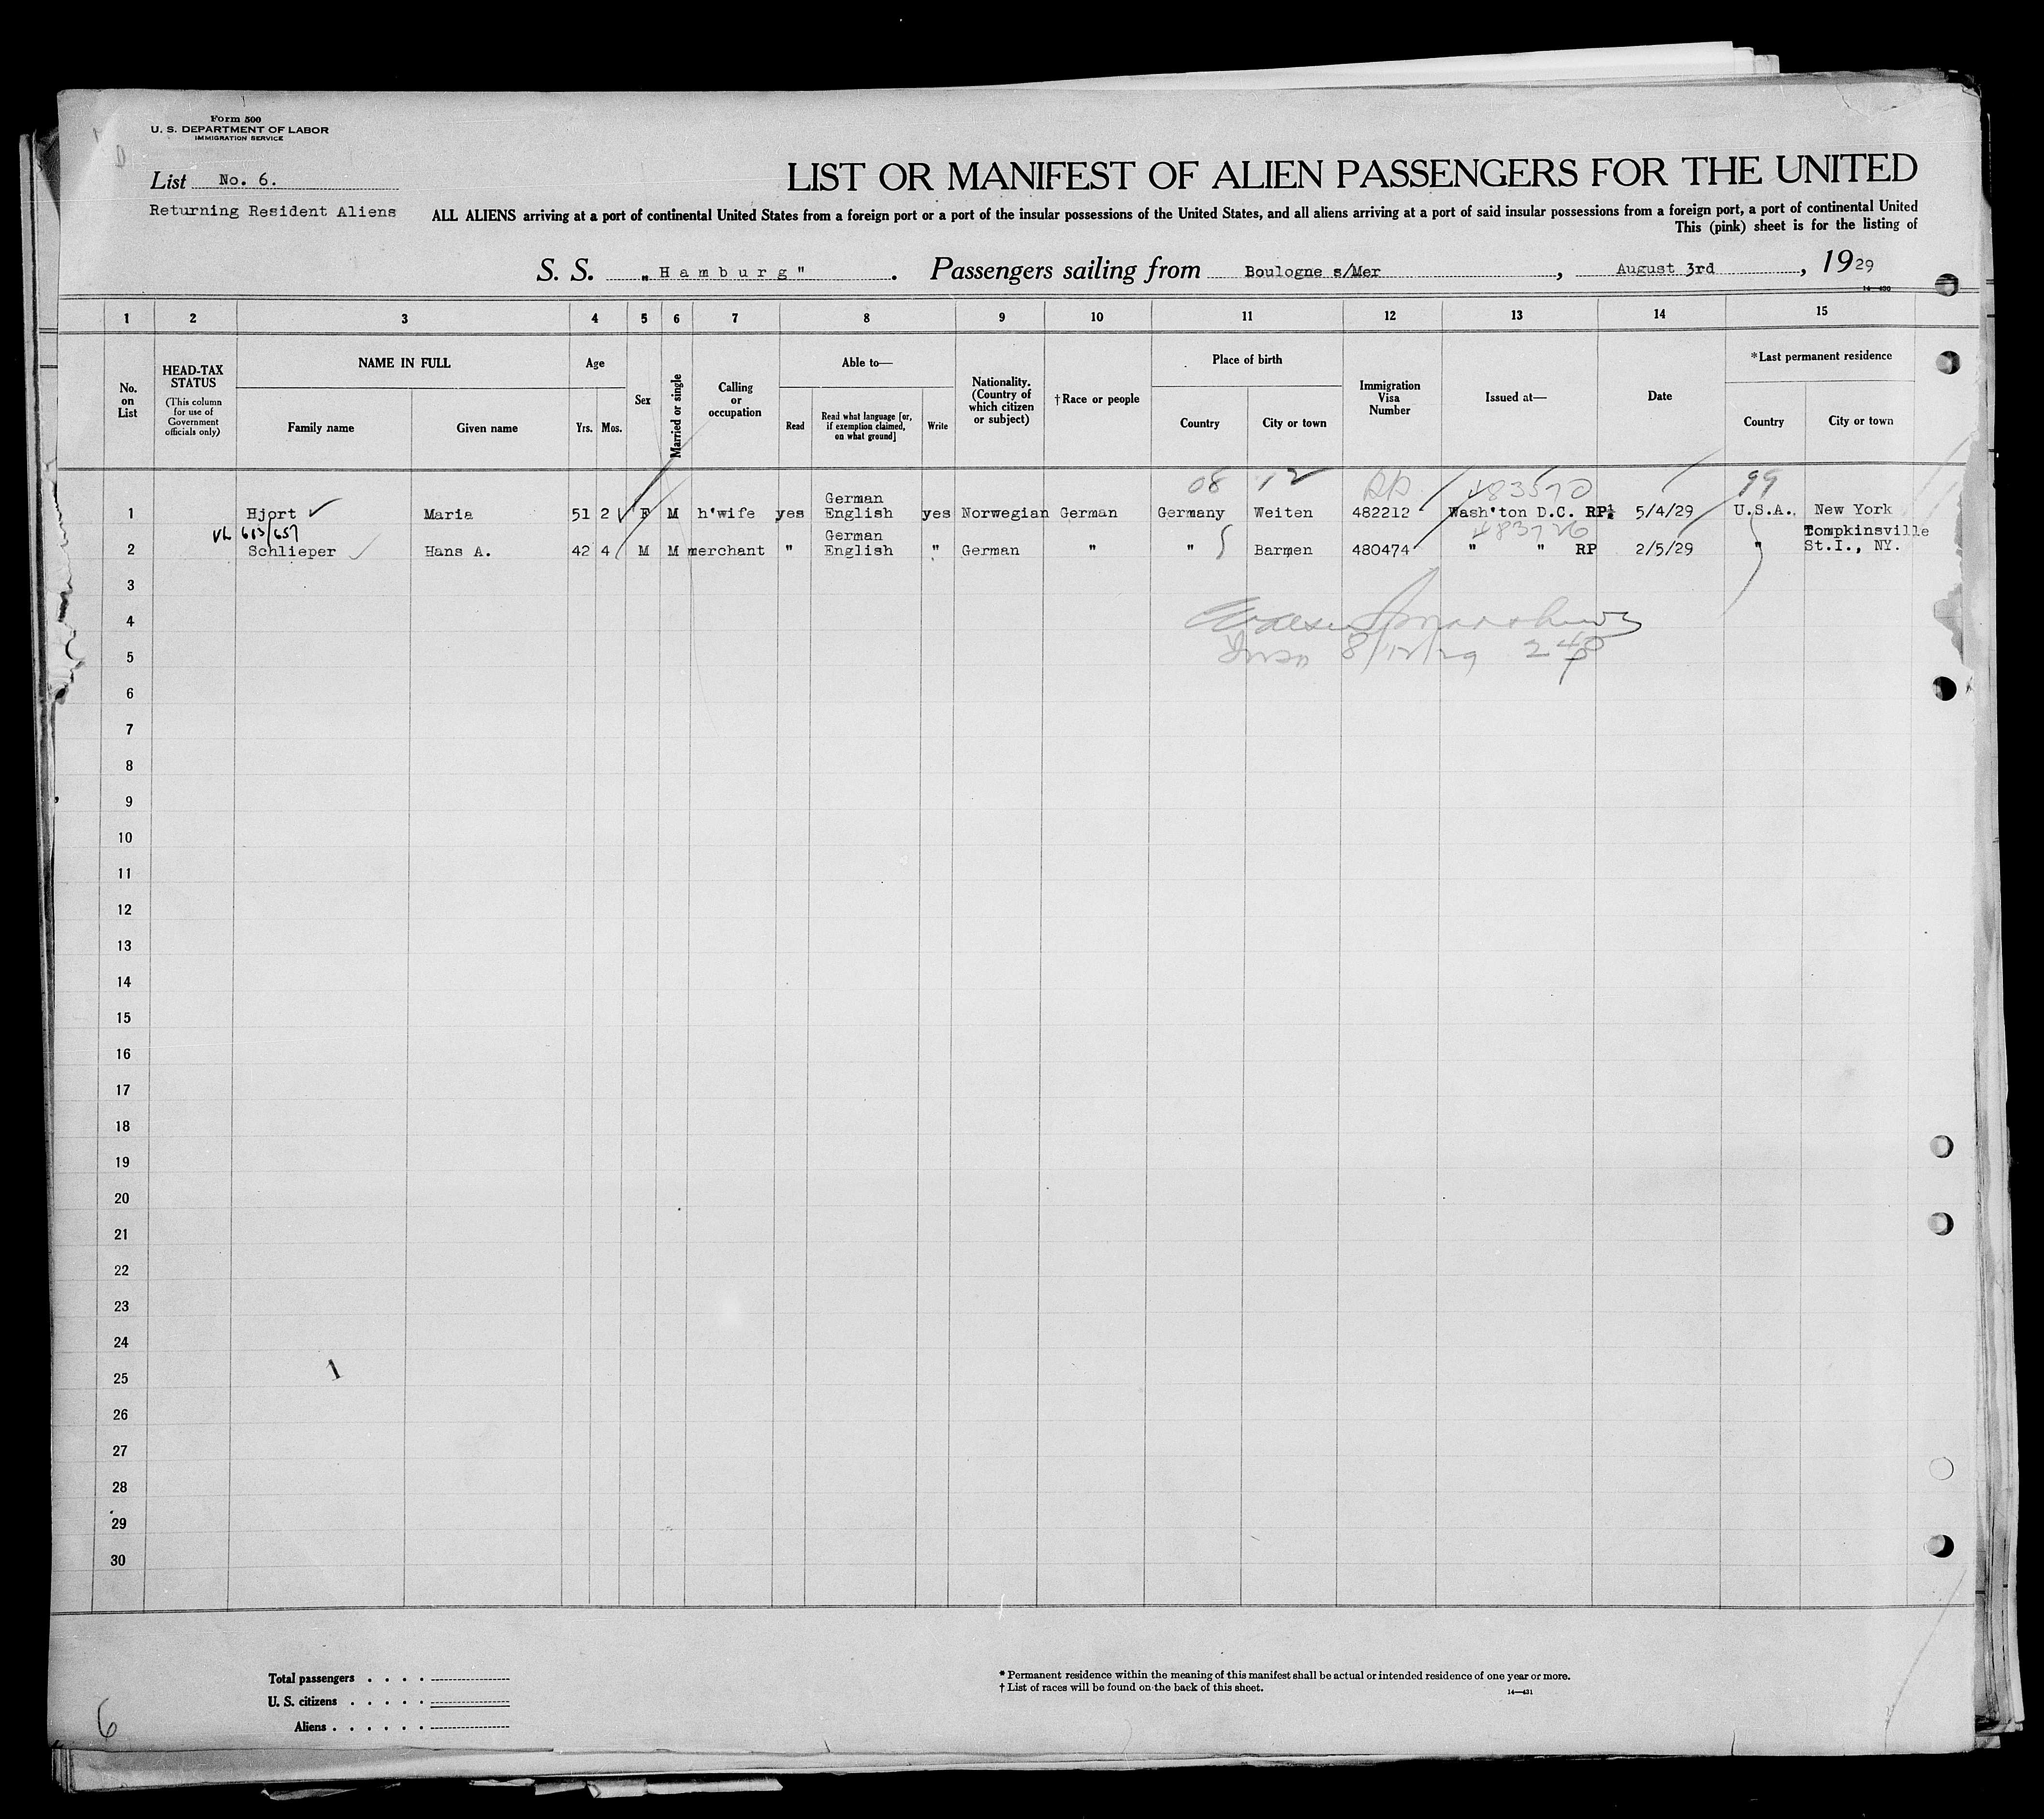 Form 500
U. S. DEPARTMENT OF LABOR
IMMIGRATION SERVICE
List No. 6.
Returning Resident Aliens
LIST OR MANIFEST OF ALIEN PASSENGERS FOR THE UNITED
ALL ALIENS arriving at a port of continental United States from a foreign port or a port of the insular possessions of the United States, and all aliens arriving at a port of said insular possessions from a foreign port, a port of continental United
This (pink) sheet is for the listing of
S. S. „Hamburg" . Passengers sailing from Boulogne s/Mer , August 3rd , 1929
14—430
1 2 3 4 5 6 7 8 9 10 11 12 13 14 15
No. on List
HEAD-TAX STATUS
(This column for use of Government officials only)
NAME IN FULL
Family name Given name
Age
Yrs. Mos.
Sex
Married or single
Calling or occupation
Able to—
Read
Read what language [or, if exemption claimed, on what ground]
Write
Nationality. (Country of which citizen or subject)
†Race or people
Place of birth
Country City or town
Immigration Visa Number
Issued at—
Date
*Last permanent residence
Country City or town
08 12 483570 99
1 Hjort Maria 51 2 F M h'wife yes German English yes Norwegian German Germany Weiten 482212 Wash'ton D.C. RP 5/4/29 U.S.A. New York
613/657 483726
2 Schlieper Hans A. 42 4 M M merchant " German English " German " " Barmen 480474 " " RP 2/5/29 " Tompkinsville St.I., NY.
3
4
5 8/12/29
6
7
8
9
10
11
12
13
14
15
16
17
18
19
20
21
22
23
24
25
26
27
28
29
30
Total passengers . . . .
U. S. citizens . . . . .
Aliens . . . . . .
* Permanent residence within the meaning of this manifest shall be actual or intended residence of one year or more.
† List of races will be found on the back of this sheet.
14—431
6